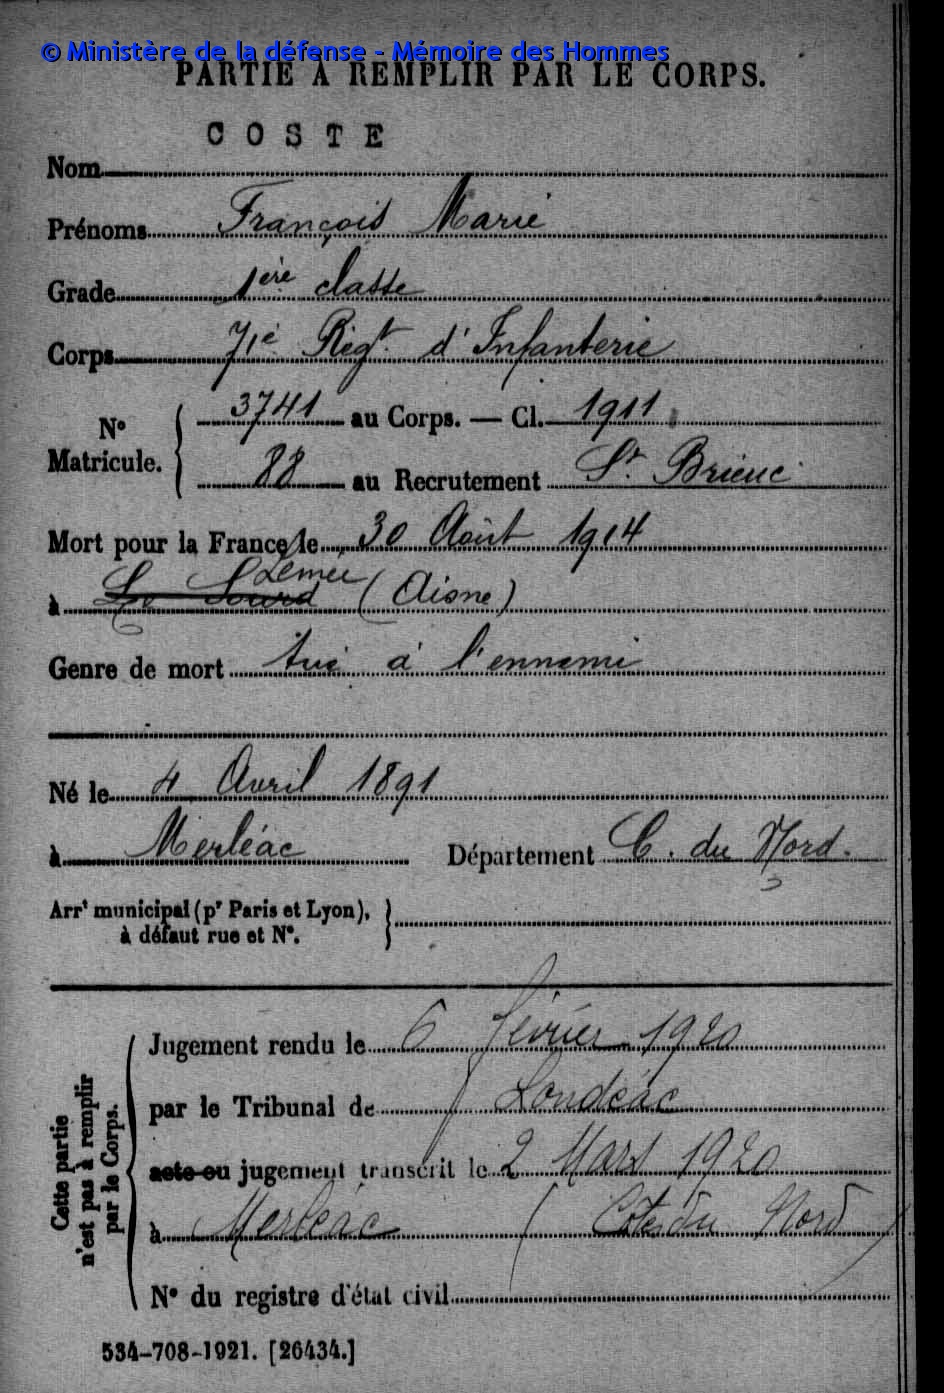 © Ministère de la défense - Mémoire des Hommes
PARTIE À REMPLIR PAR LE CORPS.
COSTE
Nom
Prénoms François Marie
Grade 1ère classe
Corps 71e Régt. d'Infanterie
N° Matricule. { 3741 au Corps. — Cl. 1911
88 au Recrutement St. Brieuc
Mort pour la France le 30 Août 1914
Lemée
à Le Sourd (Aisne)
Genre de mort tué à l'ennemi
Né le 4 Avril 1891
à Merléac Département C. du Nord.
Arrt municipal (pr Paris et Lyon), }
à défaut rue et N°.
Cette partie n'est pas à remplir par le Corps.
Jugement rendu le 6 février 1920
par le Tribunal de Loudéac
acte ou jugement transcrit le 2 Mars 1920
à Merléac (Côtes du Nord)
N° du registre d'état civil
534-708-1921. [26434.]